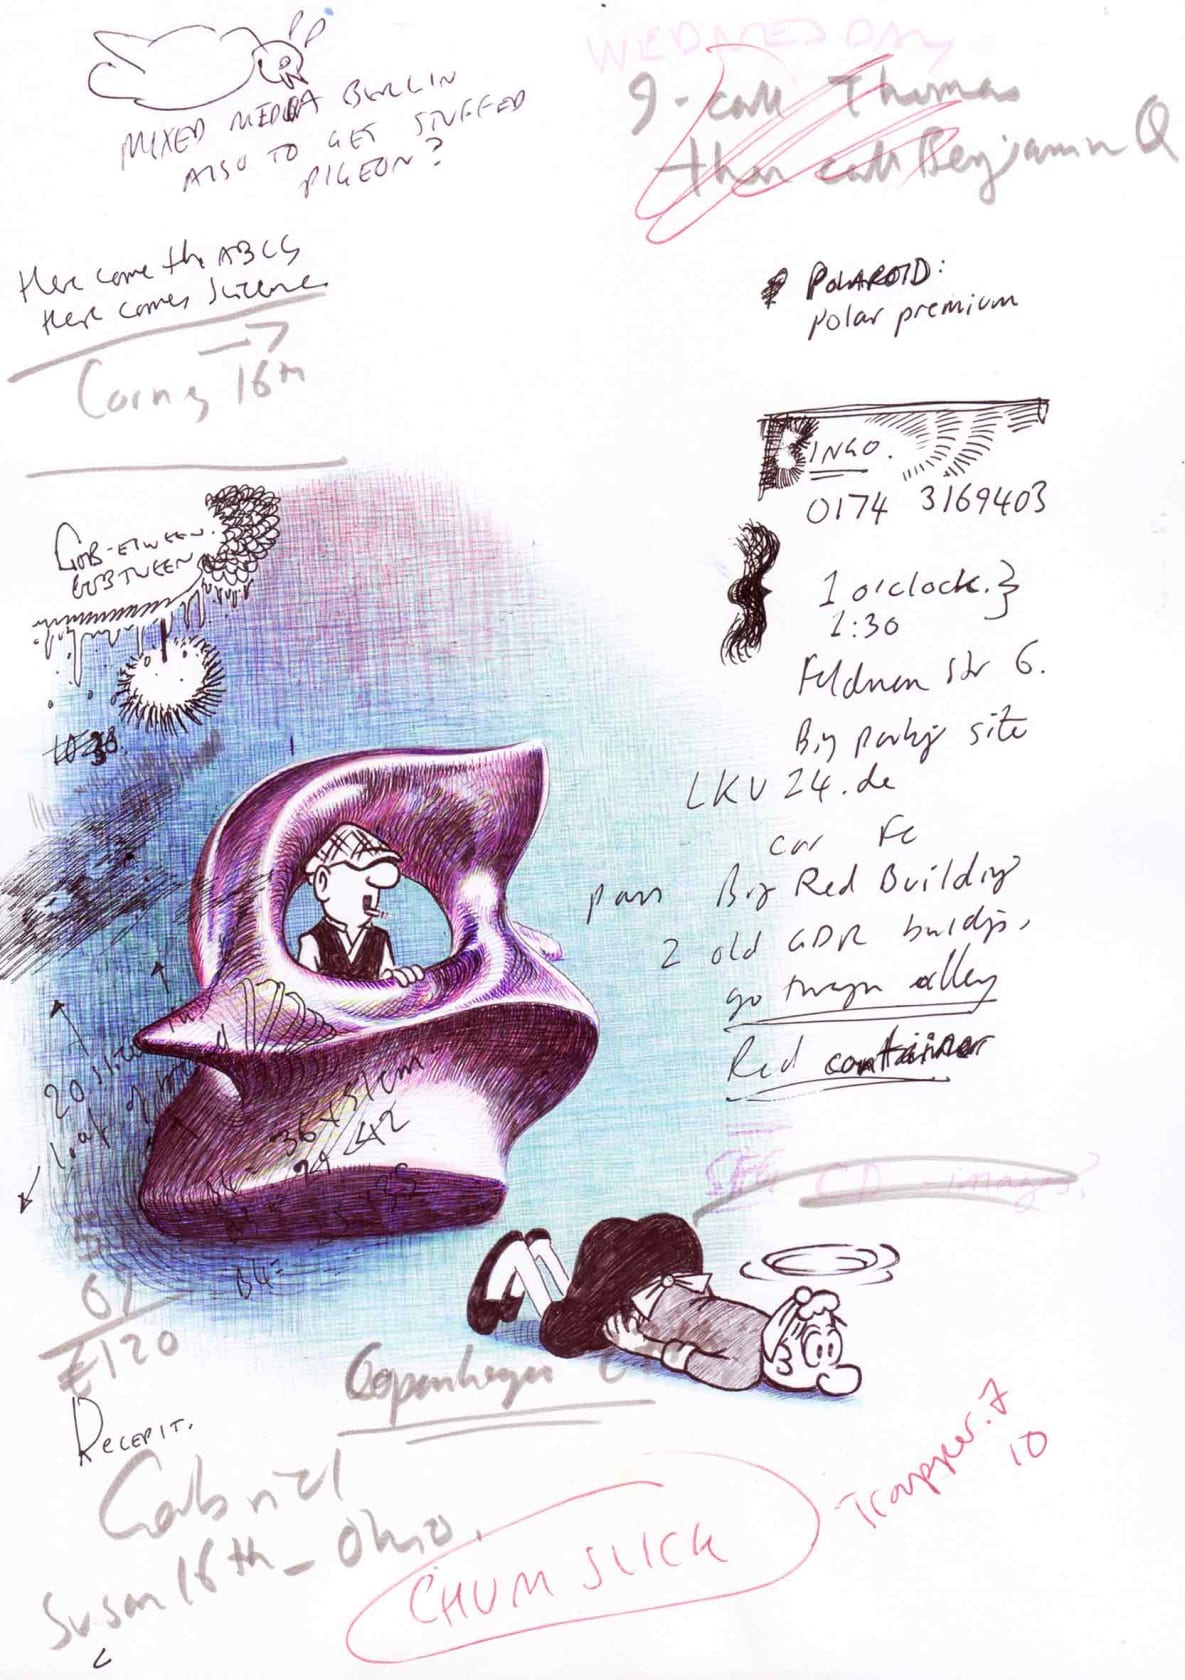 MIXED MEDIA BERLIN
ALSO TO GET STUFFED
PIGEON?
WEDNESDAY
9 - call Thomas
then call Benjamin Q
Here come the ABCs
Here comes Science
16th
POLAROID:
Polar premium
BINGO.
0174 3169403
1 o'clock. }
1:30
str 6.
Big parking site
LKV 24.de
car
pass Big Red Building
2 old GDR buildings,
go through alley
Red container
GOB-ETWEEN.
GOBTWEEN
20
loaf of
36 x 51cm
29 x 42
B4=
CD - images?
62
£120
RECEPIT.
Copenhagen
Gabriel
Susan 16th - Ohio.
CHUM SLICK
Trapper. 7
10